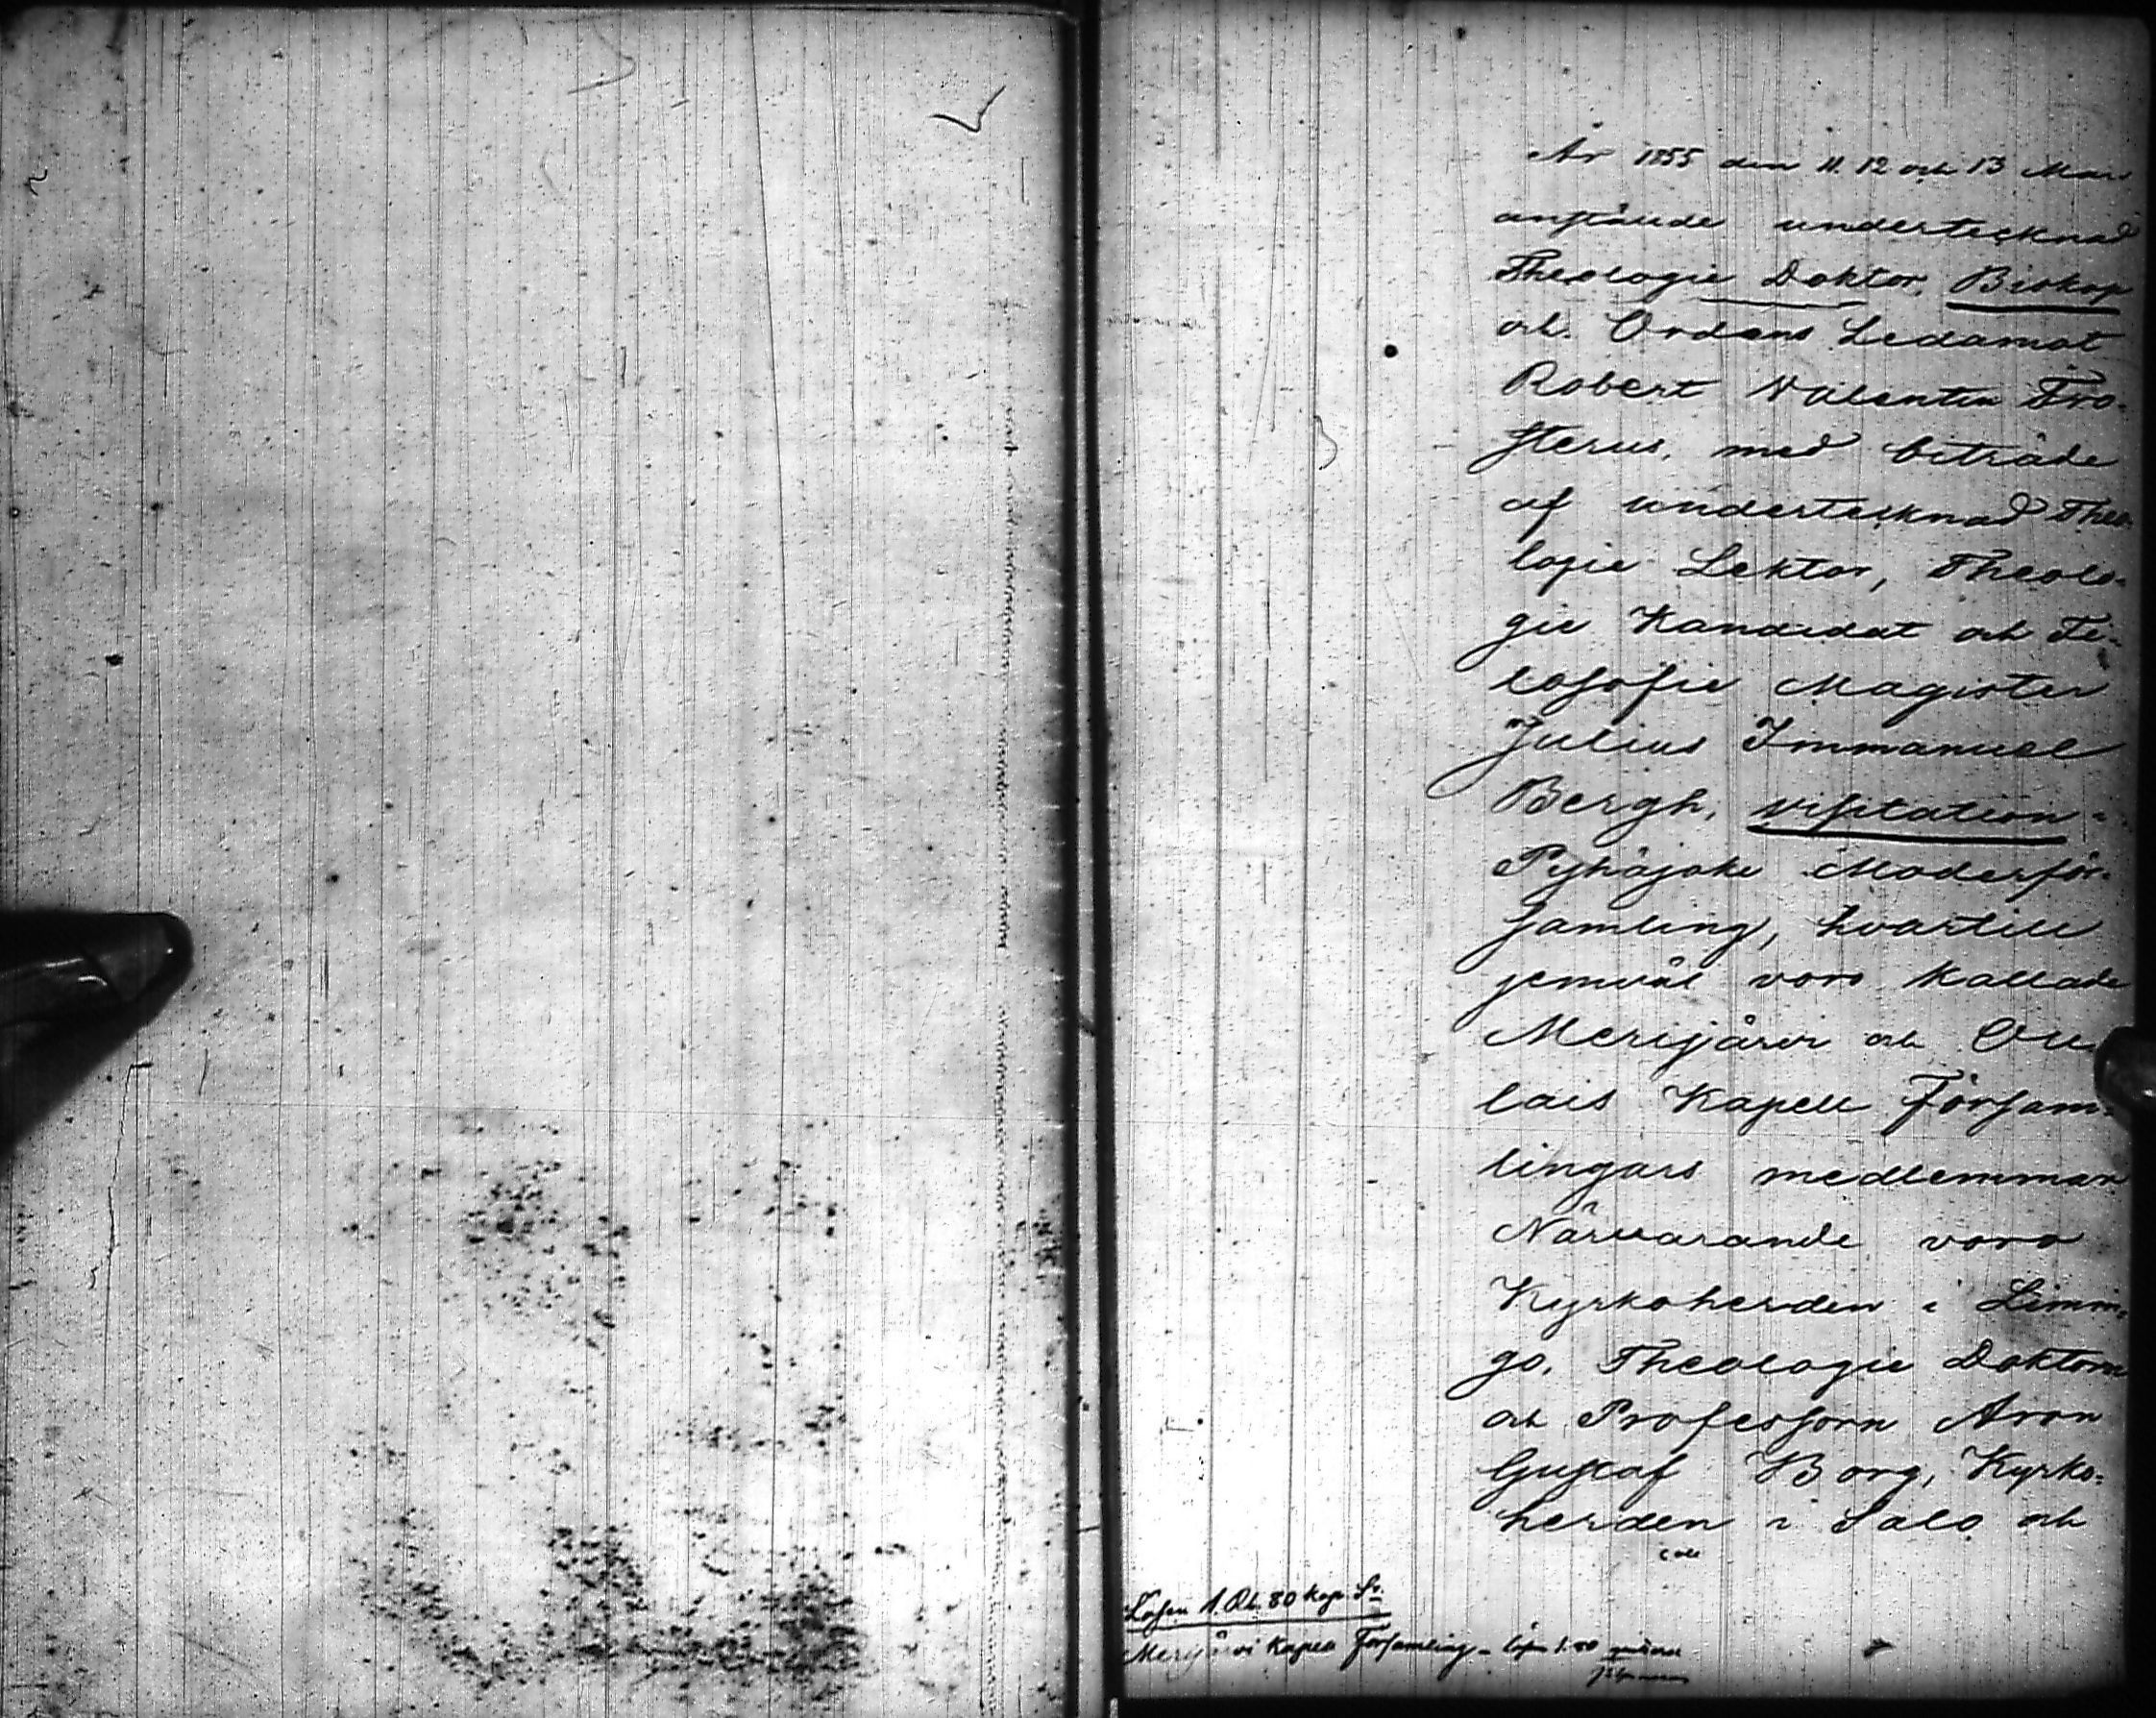 År 1855 den 11. 12 och 13 Mars
anstälde undertecknad
Theologie Doktor, Biskop
och Ordens Ledamot
Robert Valentin Fro-
sterus, med biträde
af undertecknad Theo-
logie Lektor, Theolo-
gie Kandidat och Fi-
losofie Magister
Julius Immanuel
Bergh, visitation i
Pyhäjoki Moderför-
samling, hvartill
jemväl voro kallade
Merijärvi och Ou-
lais Kapell Försam-
lingars medlemmar
Närvarande voro
Kyrkoherden i Limin-
go, Theologie Doktorn
och Professorn Aron
Gustaf Borg, Kyrko-
herden i Salo och
Lösen 1. Rb. 80 Kop. Sr.
Merijärvi Kapell Församling - lösen 1.80